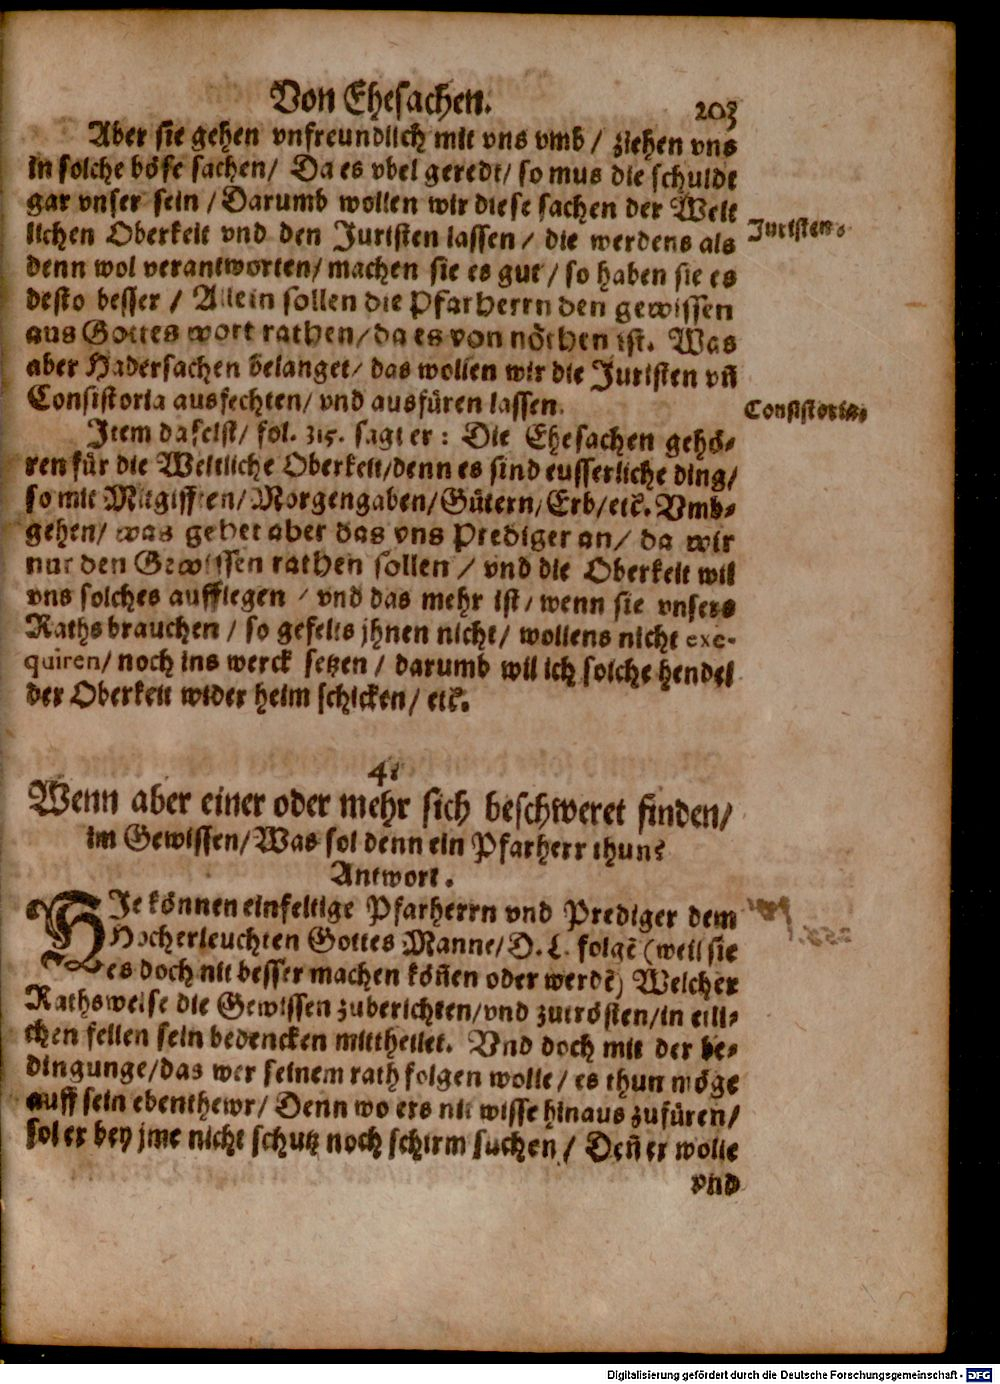 Von Ehesachen. 203
Aber sie gehen vnfreundlich mit vns vmb / ziehen vns
in solche böse sachen / Da es vbel geredt / so mus die schuldt
gar vnser sein / Darumb wollen wir diese sachen der Welt
lichen Oberkeit vnd den Juristen lassen / die werdens als
Juristen.
denn wol verantworten / machen sie es gut / so haben sie es
desto besser / Allein sollen die Pfarherrn den gewissen
aus Gottes wort rathen / da es von nöthen ist. Was
aber Hadersachen belanget / das wollen wir die Juristen vñ
Consistoria ausfechten / vnd ausfüren lassen.
Consistoria.
Item daselst / fol. 315. sagt er : Die Ehesachen gehö-
ren für die Weltliche Oberkeit / denn es sind eusserliche ding /
so mit Mitgifften / Morgengaben / Gütern / Erb / etc. Vmb-
gehen / was gehet aber das vns Prediger an / da wir
nur den Gewissen rathen sollen / vnd die Oberkeit wil
vns solches aufflegen / vnd das mehr ist / wenn sie vnsers
Raths brauchen / so gefelts jhnen nicht / wollens nicht exe-
quiren / noch ins werck setzen / darumb wil ich solche hendel
der Oberkeit wider heim schicken / etc.
4.
Wenn aber einer oder mehr sich beschweret finden /
im Gewissen / Was sol denn ein Pfarherr thun?
Antwort.
HIe können einfeltige Pfarherrn vnd Prediger dem
Hocherleuchten Gottes Manne / D. L. folgē (weil sie
es doch nit besser machen köñen oder werdē) Welcher
Rathsweise die Gewissen zuberichten / vnd zutrösten / in etli-
chen fellen sein bedencken mittheilet. Vnd doch mit der be-
dingunge / das wer seinem rath folgen wolle / es thun möge
auff sein ebenthewr / Denn wo ers nit wisse hinaus zufüren /
sol er bey jme nicht schutz noch schirm suchen / Deñ er wolle
vnd
Digitalisierung gefördert durch die Deutsche Forschungsgemeinschaft - DFG